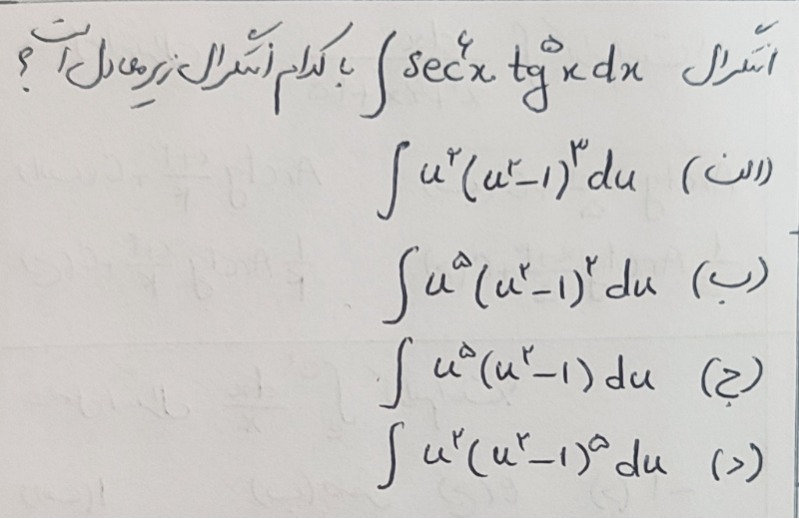 انتگرال ∫ sec⁶x tg⁵x dx با کدام انتگرال زیر معادل است؟
الف) ∫ u²(u²−1)³ du
ب) ∫ u⁵(u²−1)² du
ج) ∫ u⁵(u²−1) du
د) ∫ u²(u²−1)⁵ du